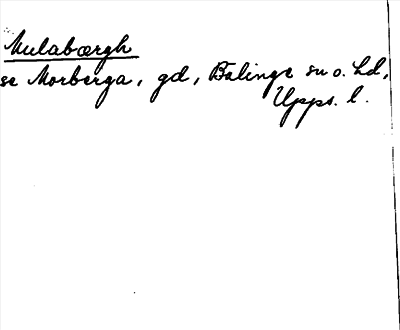 Mulabærgh
se Morberga, gd, Bälinge sn o. hd,
Upps. l.